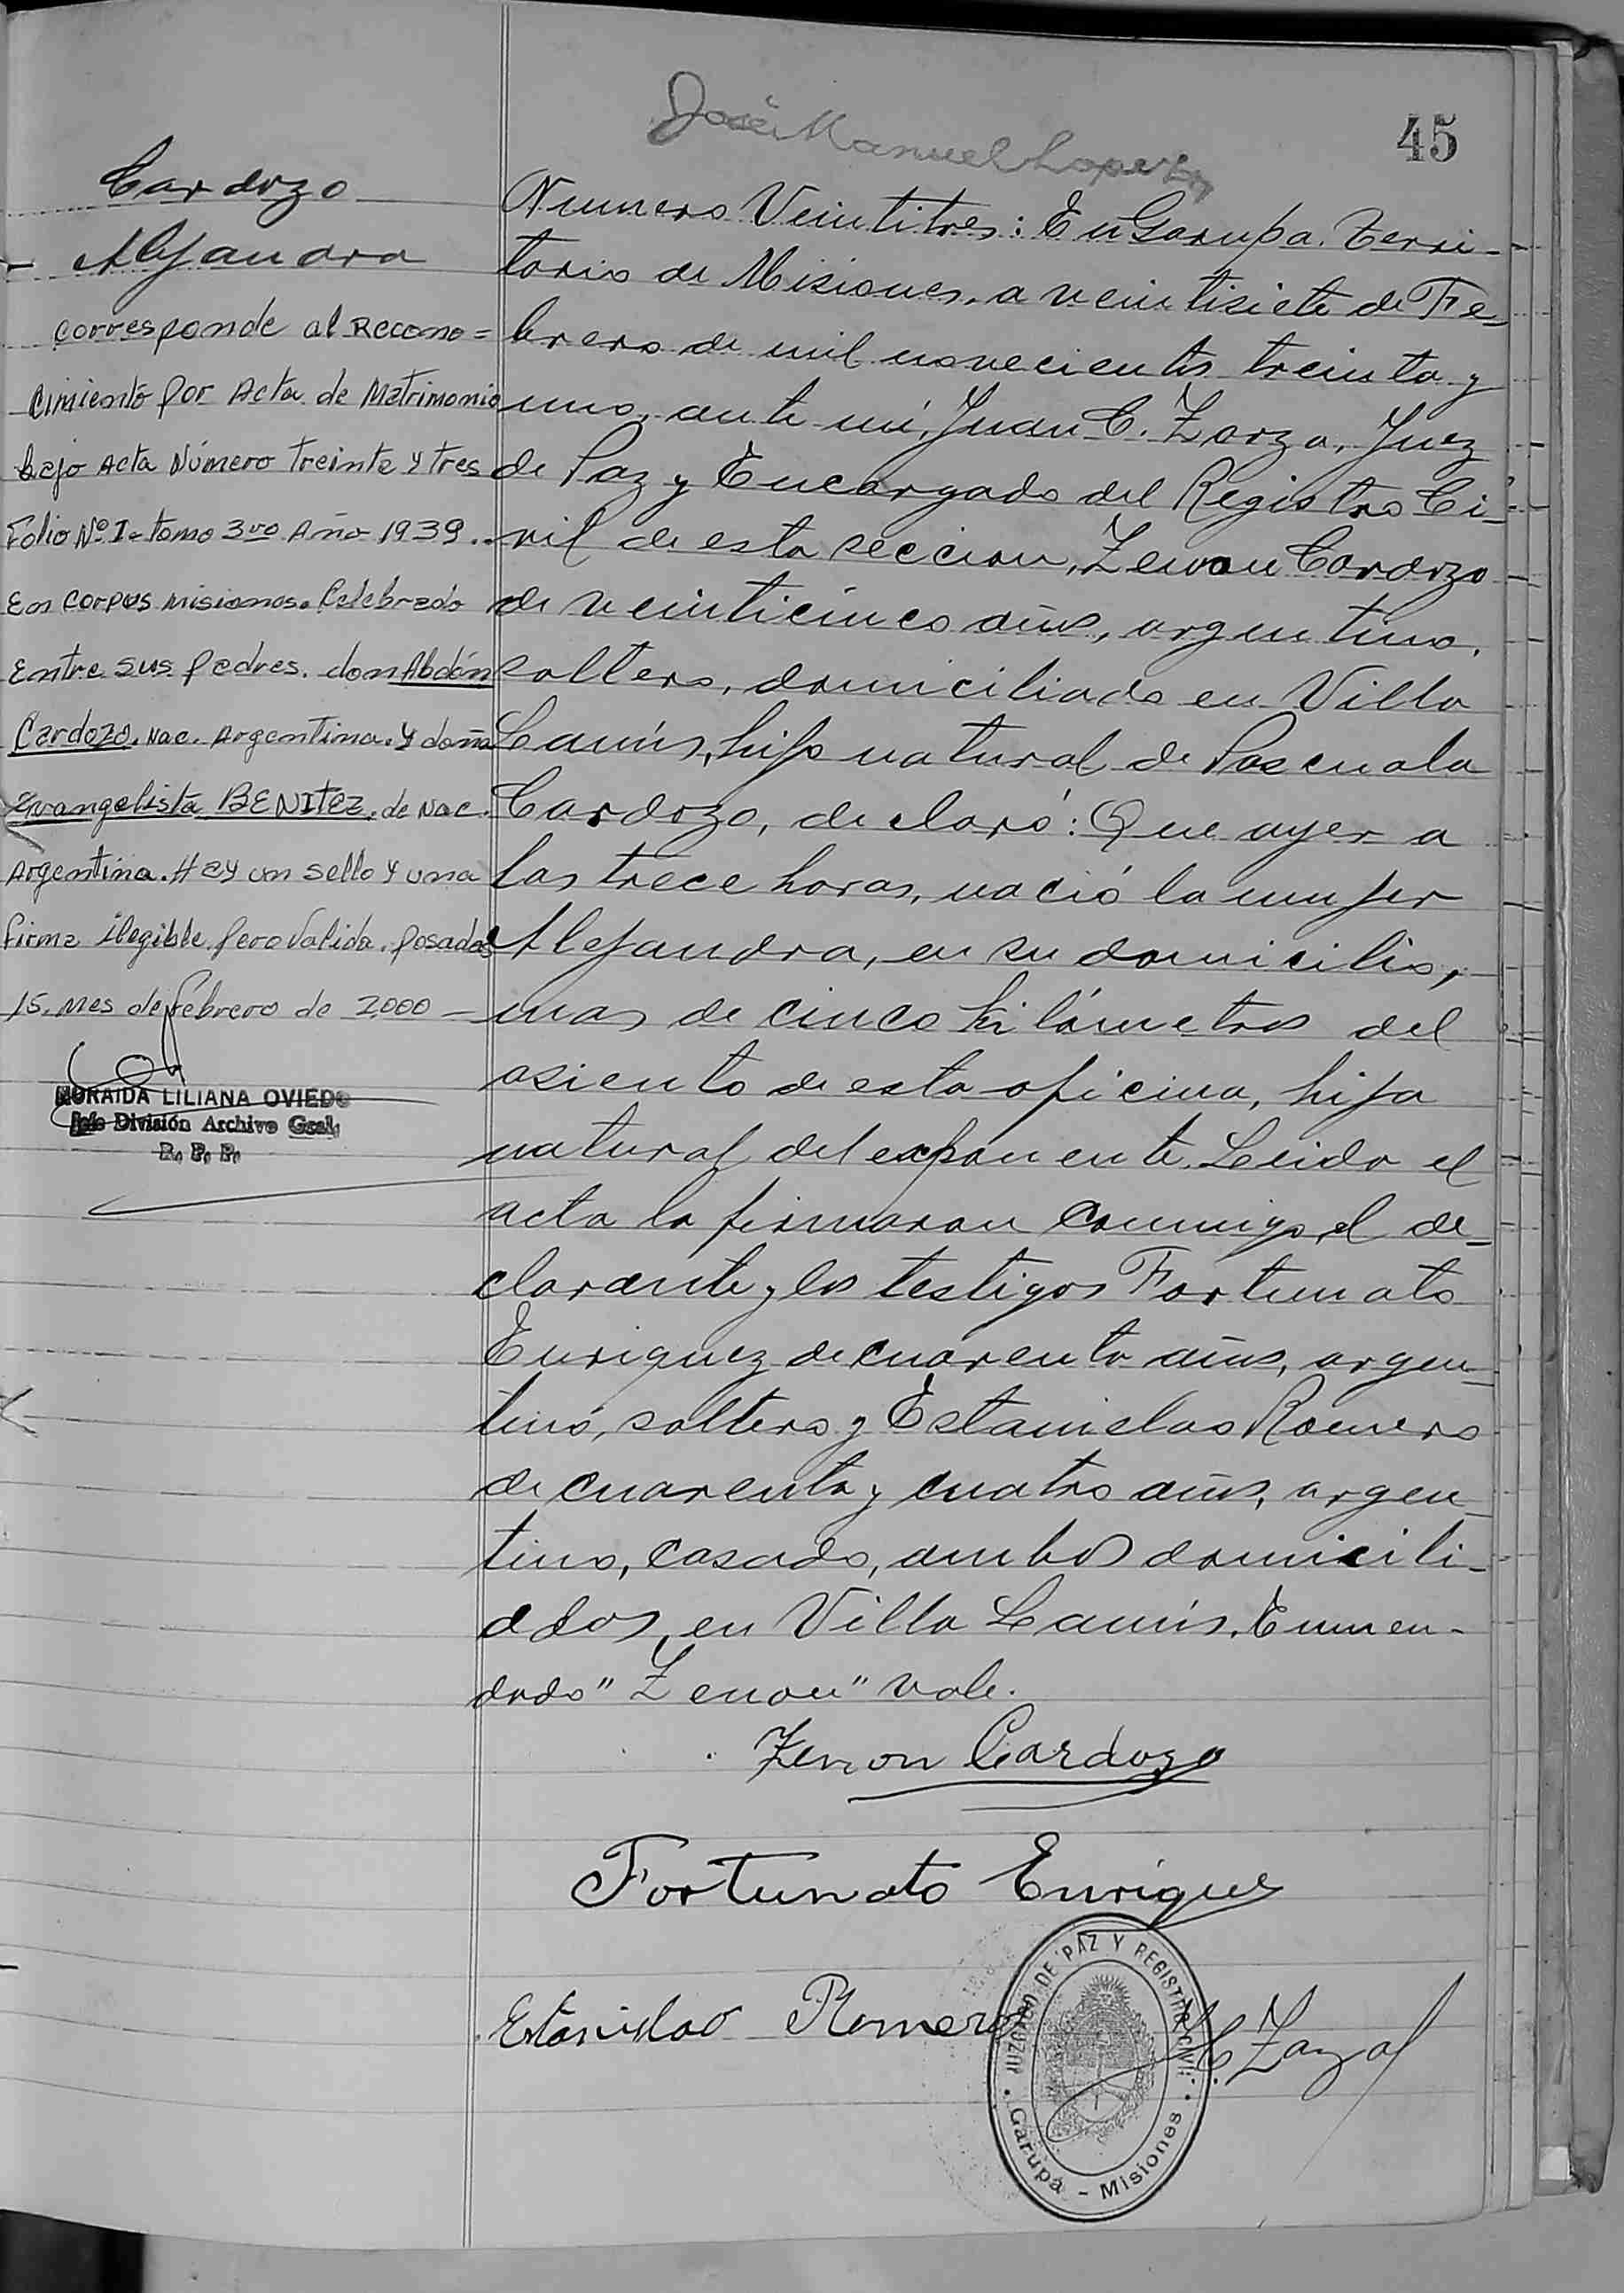 José Manuel Lopez
45
Cardozo
Alejandra
corresponde al Recono=
cimiento por Acta de Matrimonio
bajo Acta Número treinta y tres
Folio Nº I- tomo 3ro Año 1939..
En Corpus Misiones. Celebrado
Entre sus padres. don Abdón
Cardozo. Nac. Argentina. y doña
Evangelista BENITEZ. de Nac.
Argentina. Hay un sello y una
firma ilegible pero valida. posadas
15. mes de febrero de 2000
NORAIDA LILIANA OVIEDO
Jefe División Archivo Gral.
R. P. P.
Numero Veintitres: En Garupa. Terri-
torio de Misiones, a veintisiete de Fe-
brero de mil novecientos treinta y
uno, ante mí, Juan C. Zarza, Juez
de Paz y Encargado del Registro Ci-
vil de esta seccion, Zenon Cardozo
de veinticinco años, argentino,
soltero, domiciliado en Villa
Lanús, hijo natural de Pascuala
Cardozo, declaró: Que ayer a
las trece horas, nació la mujer
Alejandra, en su domicilio,
mas de cinco kilómetros del
asiento de esta oficina, hija
natural del exponente. Leida el
acta la firmaron conmigo, el de-
clarante y los testigos Fortunato
Enriquez de cuarenta años, argen-
tino, soltero y Estanislao Romero
de cuarenta y cuatro años, argen-
tino, casado, ambos domicili-
ados, en Villa Lanús. Enmen-
dado "Zenon" vale.
Zenon Cardozo
Fortunato Enriquez
Estanislao Romero
J. C. Zarza
JUZGADO DE PAZ Y REGISTRO CIVIL
Garupá - Misiones